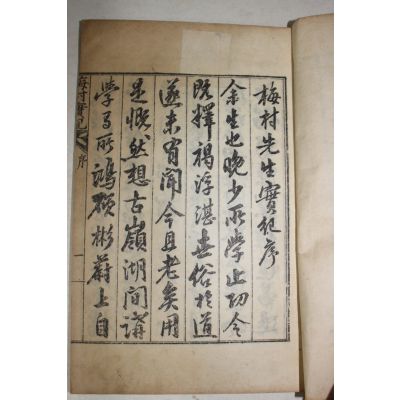 梅村先生實紀序
余生也晚少所學止功令
旣釋褐浮湛畫俗於道
遂未有聞今且老矣用
是慨然想古嶺湖間講
學之所鴻碩彬蔚上自
梅村實紀 序 一